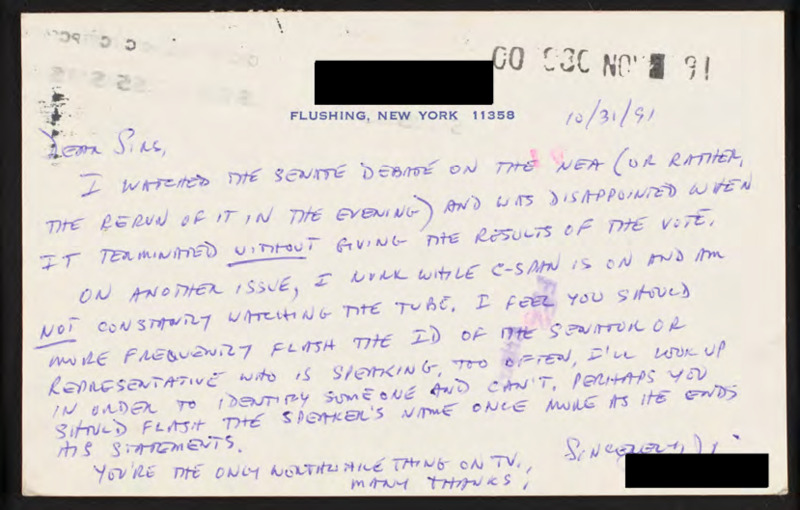 00 NOV 91
FLUSHING, NEW YORK 11358
10/31/91
DEAR SIRS,
I WATCHED THE SENATE DEBATE ON THE NEA (OR RATHER,
THE RERUN OF IT IN THE EVENING) AND WAS DISAPPOINTED WHEN
IT TERMINATED WITHOUT GIVING THE RESULTS OF THE VOTE.
ON ANOTHER ISSUE, I WORK WHILE C-SPAN IS ON AND AM
NOT CONSTANTLY WATCHING THE TUBE. I FEEL YOU SHOULD
MORE FREQUENTLY FLASH THE ID OF THE SENATOR OR
REPRESENTATIVE WHO IS SPEAKING. TOO OFTEN, I'LL LOOK UP
IN ORDER TO IDENTIFY SOMEONE AND CAN'T. PERHAPS YOU
SHOULD FLASH THE SPEAKER'S NAME ONCE MORE AS HE ENDS
HIS STATEMENTS.
YOU'RE THE ONLY WORTHWHILE THING ON TV.,
MANY THANKS,
SINCERELY,